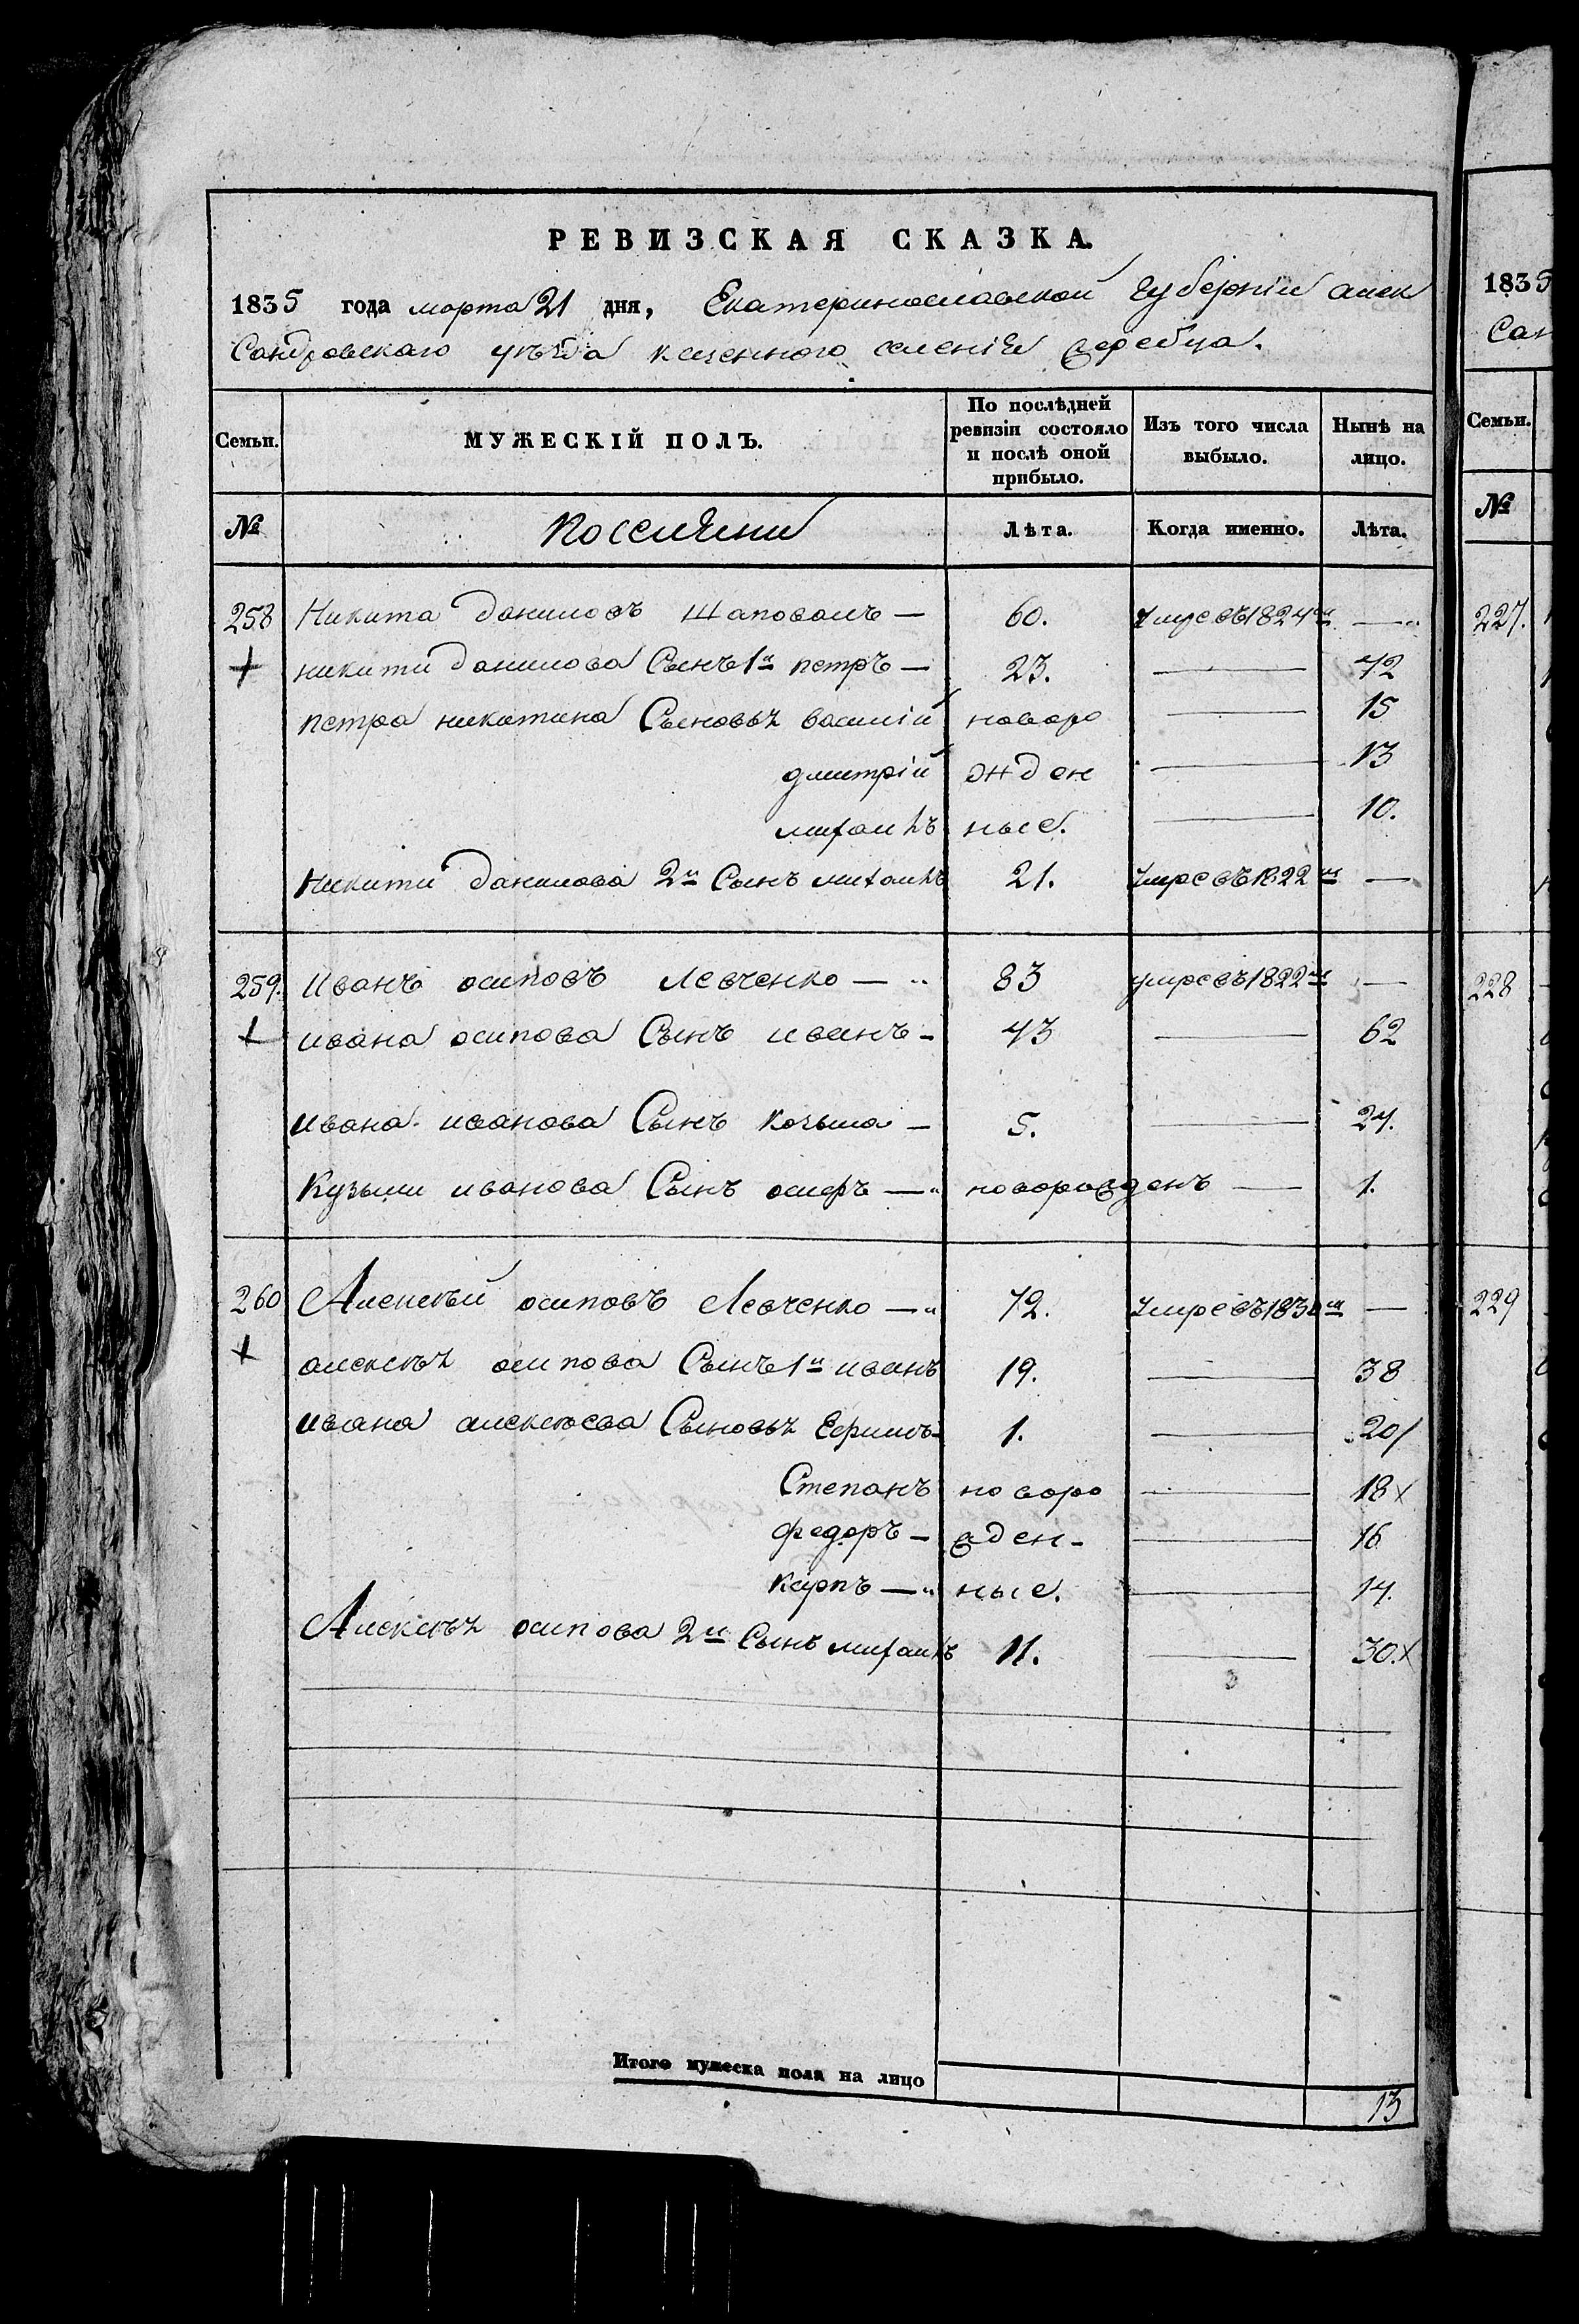 РЕВИЗСКАЯ СКАЗКА.
1835 года марта 21 дня, Екатеринославской Губернiи алек
Сандровскаго уезда казенного селенiя жеребца.
Семьи. МУЖЕСКІЙ ПОЛЪ. По послѣдней ревизіи состояло и послѣ оной прибыло. Изъ того числа выбыло. Нынѣ на лицо.
№ Лѣта. Когда именно. Лѣта.
258 Никита даниловъ Шаповалъ — 60. Умре въ 1824м —
+ никити данилова Сынъ 1й петръ — 23. — 42
петра никитина Сыновья василій новоро — 15
дмитрій жден — 13
михаилъ ные. — 10.
Никити данилова 2й Сынъ михаилъ 21. Умре въ 1822м —
259. Иванъ осиповъ Левченко — 83 умре въ 1822м —
+ ивана осипова Сынъ иванъ - 43 — 62
ивана иванова Сынъ козьма — 5. — 24.
Кузьми иванова Сынъ осифъ — новорожденъ — 1.
260 Алексѣй осиповъ Левченко — 72. Умре въ 1830м —
+ алексѣя осипова Сынъ 1й иванъ 19. — 38
ивана алексѣева Сыновья Ефимъ - 1. — 20/
Степанъ новоро — 18x
федоръ - жден - — 16
карпъ — ные. — 14.
Алексѣя осипова 2й Сынъ михаилъ 11. — 30.x
Итого мужеска пола на лицо 13
1835
Сан
Семьи.
№
227.
228
229